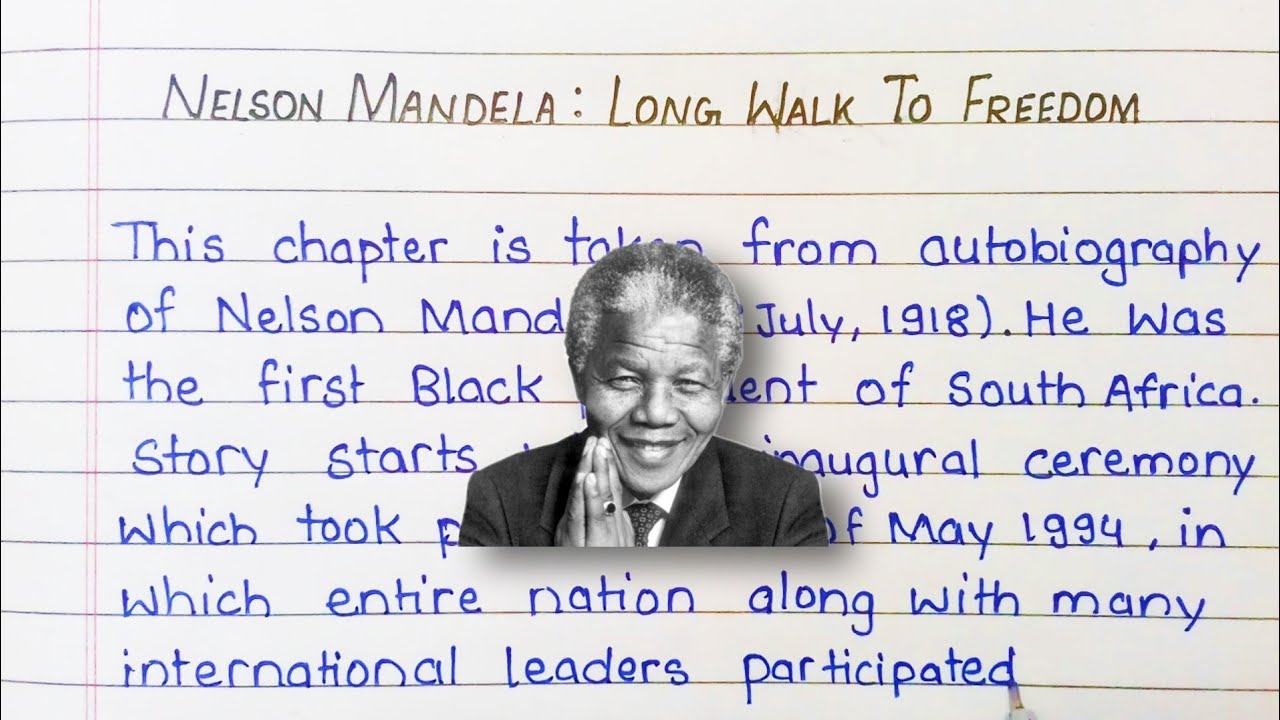 NELSON MANDELA: LONG WALK TO FREEDOM
This chapter is taken from autobiography
of Nelson July, 1918). He was
the first Black of South Africa.
Story starts inaugural ceremony
which took of May 1994, in
which entire nation along with many
international leaders participated